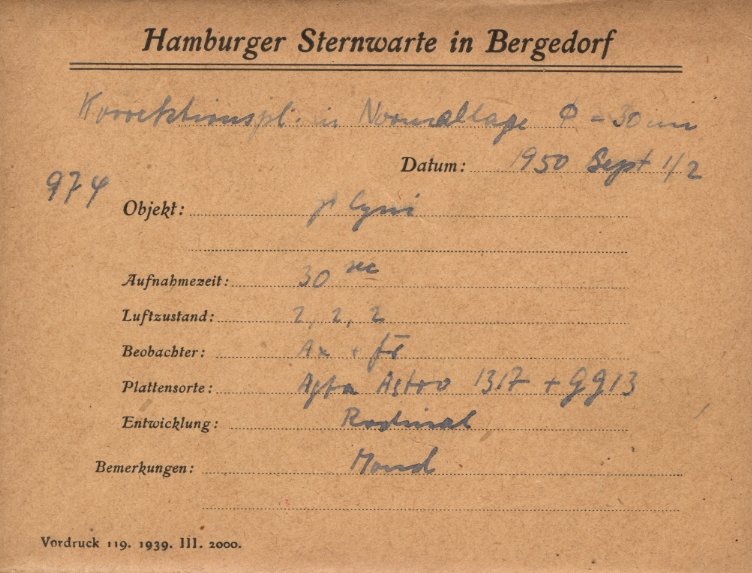 Hamburger Sternwarte in Bergedorf
Korrektionspl. in Normallage Φ = 30 cm
Datum: 1950 Sept 1/2
974
Objekt: γ Cygni
Aufnahmezeit: 30 sec
Luftzustand: 2, 2, 2
Beobachter: Ax +
Plattensorte: Agfa Astro 1317 + GG13
Entwicklung: Rodinal
Bemerkungen: Mond
Vordruck 119. 1939. III. 2000.